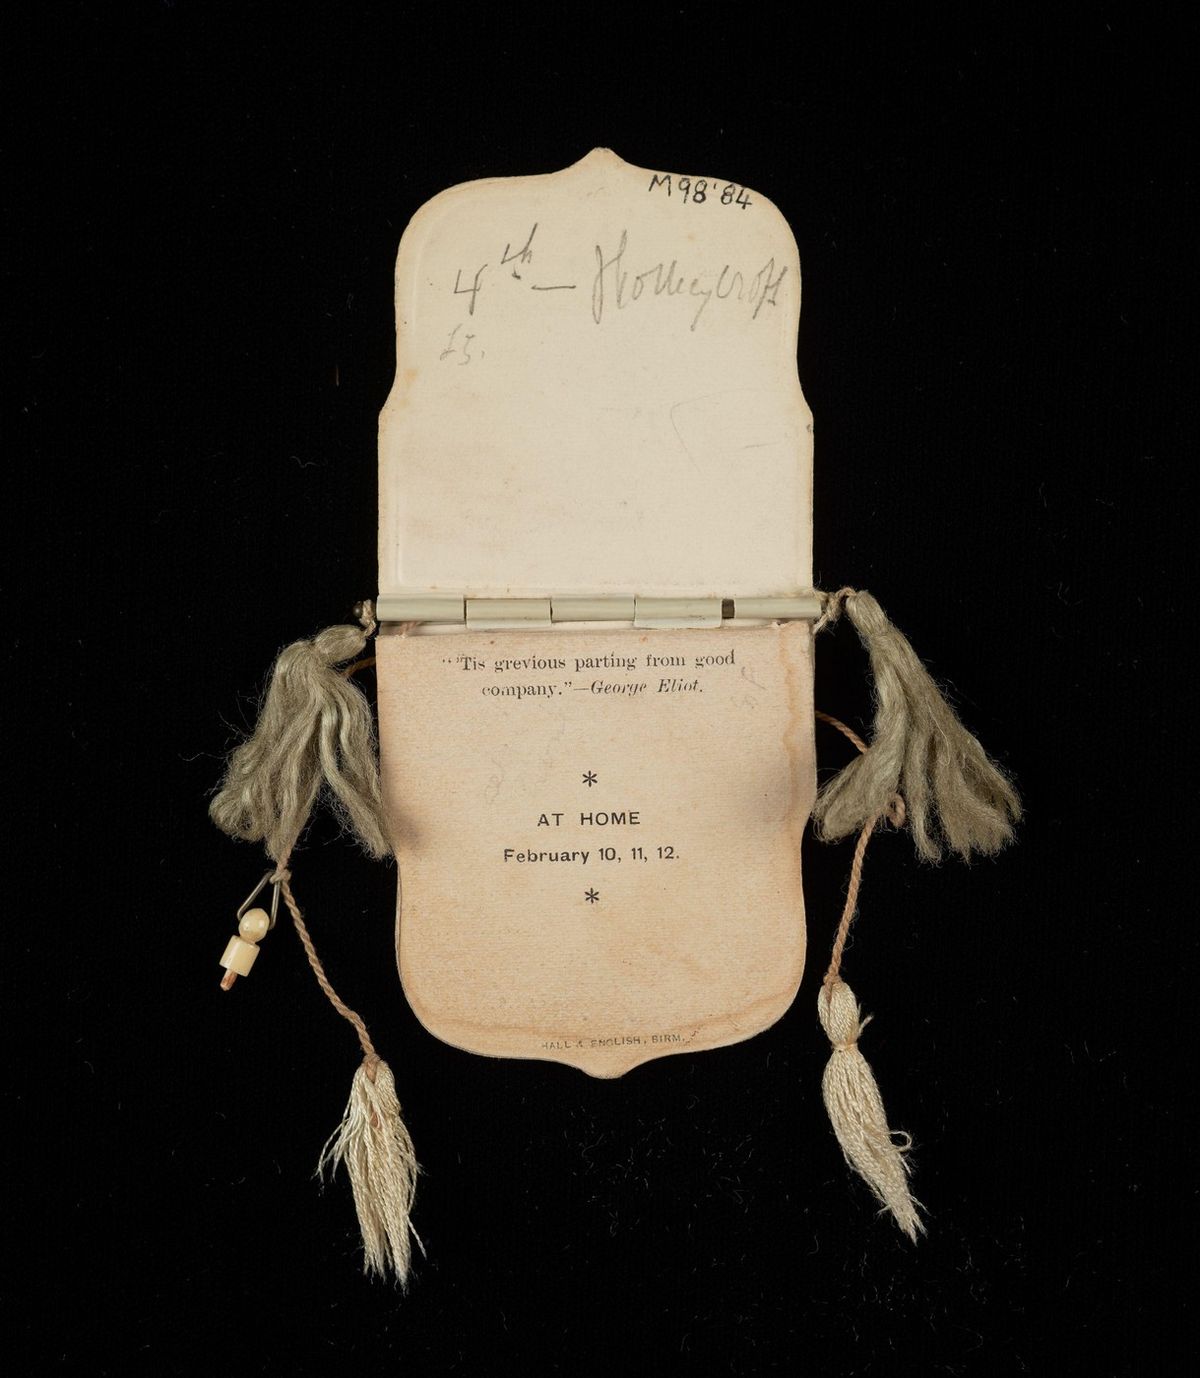 M98'84
4th — Holleycroft
£5.
"'Tis grevious parting from good
company."—George Eliot.
*
AT HOME
February 10, 11, 12.
*
HALL & ENGLISH, BIRM.